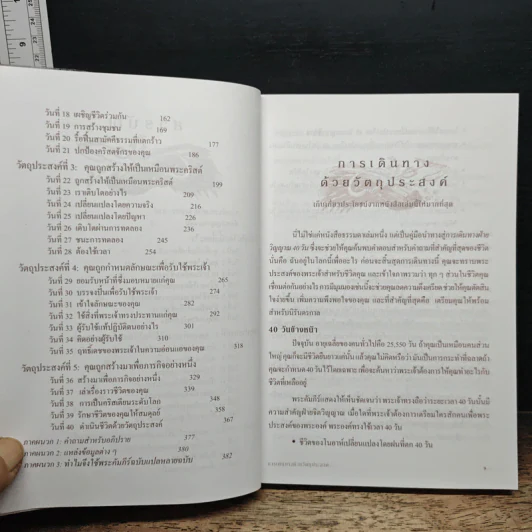 วันที่ 18 เผชิญชีวิตร่วมกัน 162
วันที่ 19 การสร้างชุมชน 169
วันที่ 20 รื้อฟื้นสามัคคีธรรมที่แตกร้าว 177
วันที่ 21 ปกป้องคริสตจักรของคุณ 186
วัตถุประสงค์ที่ 3: คุณถูกสร้างให้เป็นเหมือนพระคริสต์
วันที่ 22 ถูกสร้างให้เป็นเหมือนพระคริสต์ 199
วันที่ 23 เราเติบโตอย่างไร 209
วันที่ 24 เปลี่ยนแปลงโดยความจริง 216
วันที่ 25 เปลี่ยนแปลงโดยปัญหา 226
วันที่ 26 เติบโตผ่านการทดลอง 236
วันที่ 27 ชนะการทดลอง 245
วันที่ 28 ต้องใช้เวลา 254
วัตถุประสงค์ที่ 4: คุณถูกกำหนดลักษณะเพื่อรับใช้พระเจ้า
วันที่ 29 ยอมรับหน้าที่ซึ่งมอบหมายแก่คุณ 265
วันที่ 30 บรรจงปั้นเพื่อรับใช้พระเจ้า 274
วันที่ 31 เข้าใจลักษณะของคุณ 282
วันที่ 32 ใช้สิ่งที่พระเจ้าทรงประทานแก่คุณ 292
วันที่ 33 ผู้รับใช้แท้ปฏิบัติตนอย่างไร 301
วันที่ 34 คิดอย่างผู้รับใช้ 310
วันที่ 35 ฤทธิ์เดชของพระเจ้าในความอ่อนแอของคุณ 318
วัตถุประสงค์ที่ 5: คุณถูกสร้างมาเพื่อภารกิจอย่างหนึ่ง
วันที่ 36 สร้างมาเพื่อภารกิจอย่างหนึ่ง 329
วันที่ 37 เล่าเรื่องราวชีวิตของคุณ 339
วันที่ 38 การเป็นคริสเตียนระดับโลก 348
วันที่ 39 รักษาชีวิตของคุณให้สมดุลย์ 358
วันที่ 40 ดำเนินชีวิตด้วยวัตถุประสงค์ 367
ภาคผนวก 1: คำถามสำหรับอภิปราย 377
ภาคผนวก 2: แหล่งข้อมูลต่าง ๆ 380
ภาคผนวก 3: ทำไมจึงใช้พระคัมภีร์ฉบับแปลหลายฉบับ 382
การเดินทาง
ด้วยวัตถุประสงค์
นี่ไม่ใช่แค่หนังสือธรรมดาเล่มหนึ่ง แต่เป็นคู่มือนำทางสู่การเดินทางด้วย
วิญญาณ 40 วัน ซึ่งจะช่วยให้คุณค้นพบคำตอบสำหรับคำถามที่สำคัญที่สุดของชีวิต
นั่นคือ ฉันอยู่ในโลกนี้เพื่ออะไร ก่อนจะสิ้นสุดการเดินทางนี้ คุณจะทราบพระ
ประสงค์ของพระเจ้าสำหรับชีวิตคุณ และเข้าใจภาพรวมว่า ทุก ๆ ส่วนในชีวิตคุณ
เชื่อมต่อกันอย่างไร การมีมุมมองเช่นนี้จะช่วยคุณลดความตึงเครียด ช่วยให้คุณตัดสิน
ใจง่ายขึ้น เพิ่มความพึงพอใจของคุณ และที่สำคัญที่สุดคือ เตรียมคุณให้พร้อม
สำหรับนิรันดรกาล
40 วันข้างหน้า
ปัจจุบัน อายุเฉลี่ยของคนทั่วไปคือ 25,550 วัน ถ้าคุณเป็นเหมือนคนส่วน
ใหญ่ คุณก็จะมีชีวิตยืนยาวแค่นั้น แล้วคุณไม่คิดหรือว่า มันเป็นการกระทำที่ฉลาดถ้า
คุณจะกำหนด 40 วันไว้โดยเฉพาะ เพื่อจะค้นหาว่าพระเจ้าต้องการให้คุณทำอะไรกับ
ชีวิตที่เหลืออยู่
พระคัมภีร์แสดงให้เห็นชัดเจนว่า พระเจ้าทรงถือว่าระยะเวลา 40 วันนั้นมี
ความสำคัญฝ่ายจิตวิญญาณ เมื่อใดที่พระเจ้าต้องการเตรียมใครสักคนเพื่อพระ
ประสงค์ของพระองค์ พระองค์ทรงใช้เวลา 40 วัน
• ชีวิตของโนอาห์เปลี่ยนแปลงโดยฝนที่ตก 40 วัน
9